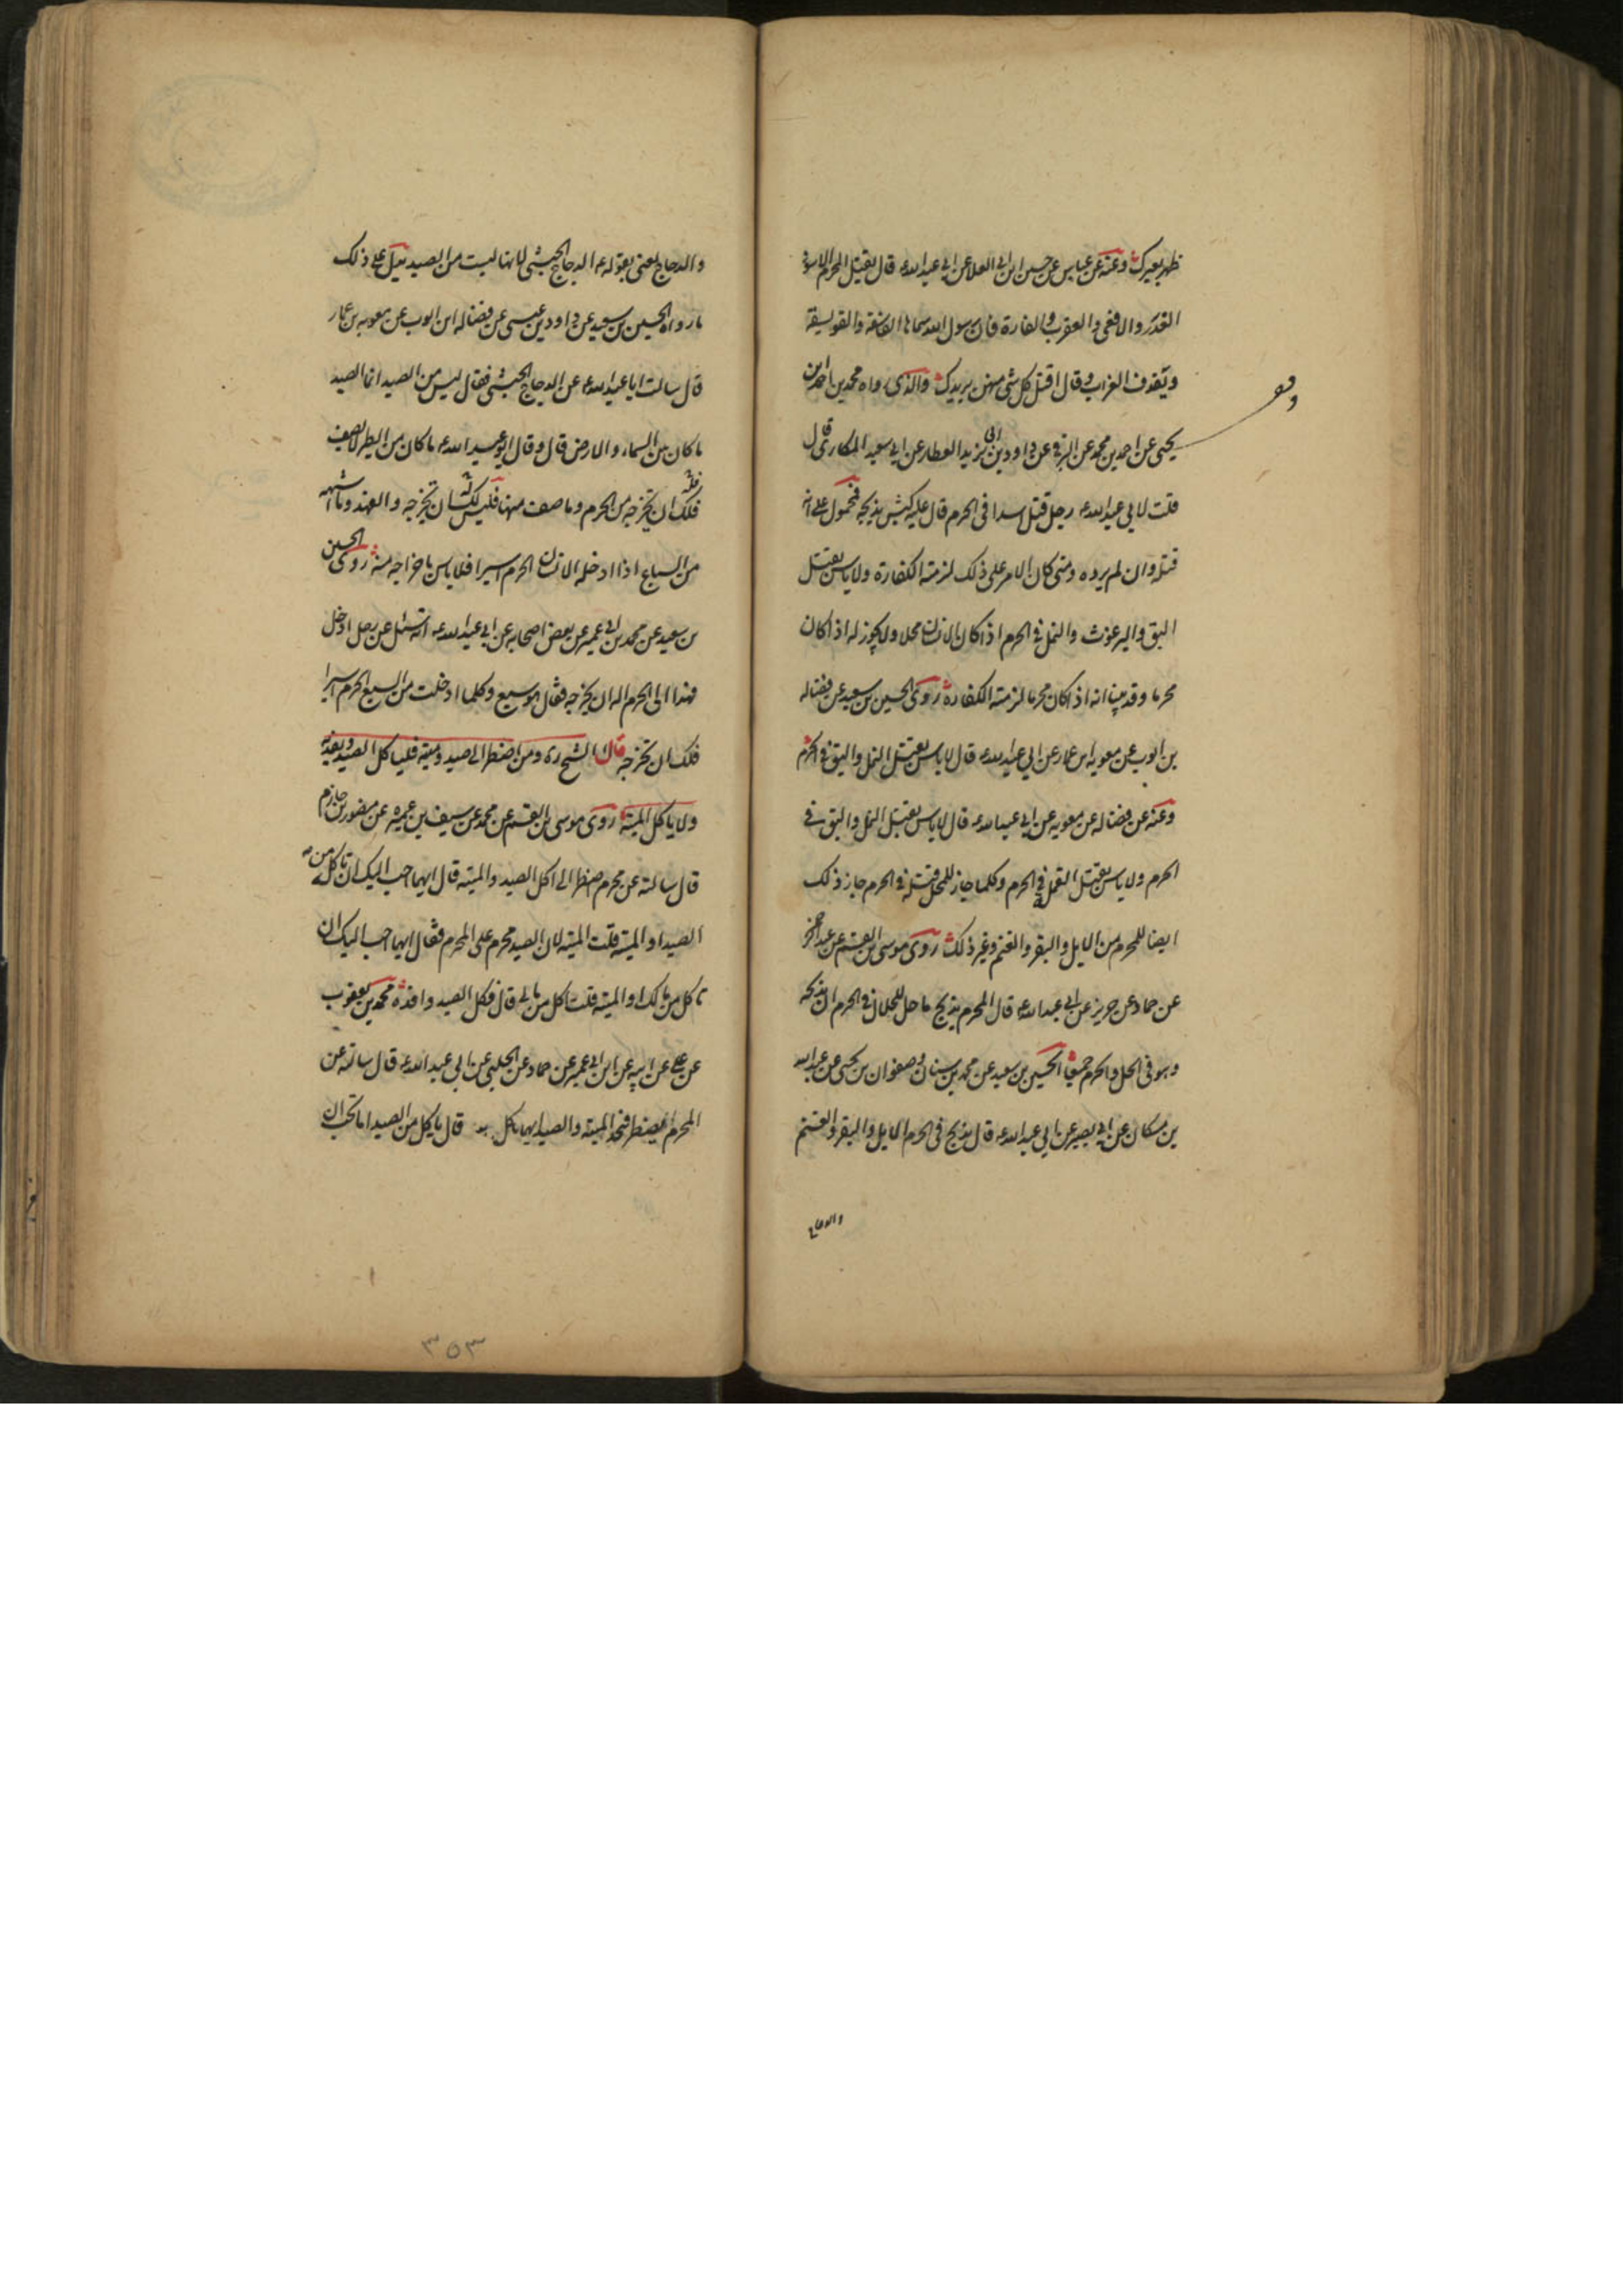 ظهر بعيرك وعنه عن عباس عن حسين ابن ابى العلا عن ابى عبد الله ع قال يقتل المحرم الاسود
الغدر والافعى والعقرب والفارة فان رسول الله سماها الفاسقة والفويسقة
ويقذف الغراب وقال اقتل كل شئ منهن يريدك والذى رواه محمد بن احمد بن
يحيى عن احمد بن محمد عن البرقى عن داود بن ابى يزيد العطار عن ابى سعيد المكارى قال
قلت لابى عبد الله ع رجل قتل اسدا فى الحرم قال عليه كبش يذبحه فمحمول على انه
قتله وان لم يرده ومتى كان الامر على ذلك لزمته الكفارة ولا باس بقتل
البق والبرغوث والنمل فى الحرم اذا كان الانسان محلا ولا يجوز له اذا كان
محرما وقد بينا انه اذا كان محرما لزمته الكفارة روى الحسين بن سعيد عن فضاله
بن ايوب عن معوية بن عمار عن ابى عبد الله ع قال لا باس بقتل النمل والبق فى الحرم
وعنه عن فضاله عن معويه عن ابى عبد الله ع قال لا باس بقتل النمل والبق فى
الحرم ولا باس بقتل القمل فى الحرم وكلما جاز للمحل قتله فى الحرم جاز ذلك
ايضا للمحرم من الابل والبقر والغنم وغير ذلك روى موسى بن القسم عن عبد الرحمن
عن حماد عن حريز عن ابى عبد الله ع قال المحرم يذبح ما حل للحلال فى الحرم ان يذبحه
وهو فى الحل والحرم جميعا الحسين بن سعيد عن محمد بن سنان وصفوان بن يحيى عن عبد الله
بن مسكان عن ابى بصير عن ابى عبد الله ع قال يذبح فى الحرم الابل والبقر والغنم
والدجاج
والدجاج يعنى بقوله ع الدجاج الحبشى لانها ليست من الصيد يدل على ذلك
ما رواه الحسين بن سعيد عن داود بن عيسى عن فضاله ابن ايوب عن معويه بن عمار
قال سالت ابا عبد الله ع عن الدجاج الحبشى فقال ليس من الصيد انما الصيد
ما كان بين السماء والارض قال وقال ابو عبد الله ع ما كان من الطير لا يصف
فلك ان تخرجه من الحرم وما صف منها فليس لك ان تخرجه والفهد وما اشبهه
من السباع اذا ادخله الانسان الحرم اسيرا فلا باس باخراجه منه روى الحسين
بن سعيد عن محمد بن ابى عمير عن بعض اصحابه عن ابى عبد الله ع انه سئل عن رجل ادخل
فهدا الى الحرم اله ان يخرجه فقال هو سبع وكلما ادخلت من السبع الحرم اسيرا
فلك ان تخرجه قال الشيخ ره ومن اضطر الى صيد وميته فلياكل الصيد ويفديه
ولا ياكل الميتة روى موسى بن القسم عن محمد عن سيف بن عميره عن منصور بن حازم
قال سالته عن محرم اضطر الى اكل الصيد والميته قال ايهما احب اليك ان تاكل من
الصيد او الميته قلت الميته لان الصيد محرم على المحرم فقال ايهما احب اليك ان
تاكل من مالك او الميته قلت اكل من مالى قال فكل الصيد وافده محمد بن يعقوب
عن على عن ابيه عن ابن ابى عمير عن حماد عن الحلبى عن ابى عبد الله ع قال سالته عن
المحرم يضطر فيجد الميته والصيد ايهما ياكل قال ياكل من الصيد اما تحب ان
٣٥٣